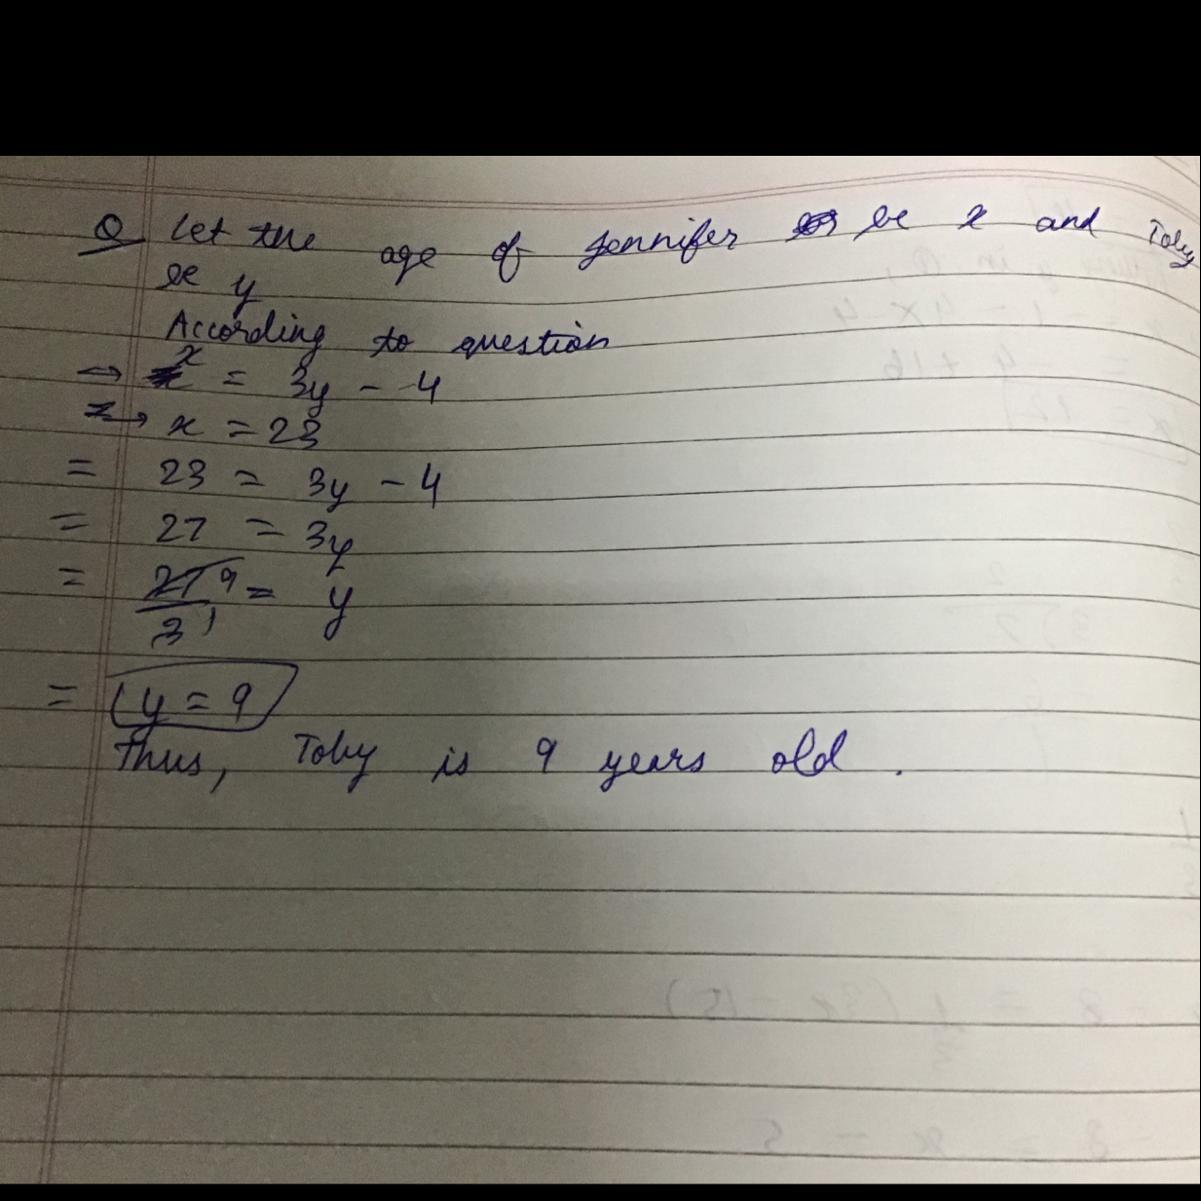 Q Let the age of Jennifer be x and Toby
be y
According to question
→ x = 3y - 4
→ x = 23
= 23 = 3y - 4
= 27 = 3y
= 27/3 9/1 = y
= y = 9
Thus, Toby is 9 years old.